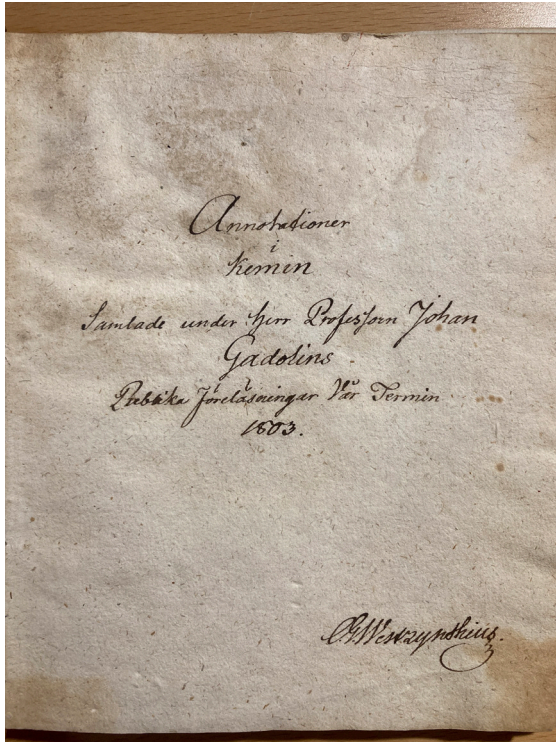 Annotationer
i
Kemin
Samlade under Herr Professorn Johan
Gadolins
Publika Föreläsningar Vår Termin
1803.